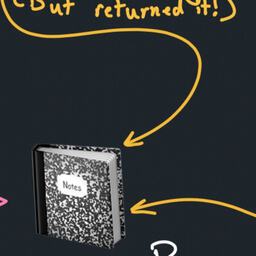 (But returned it!)
Notes